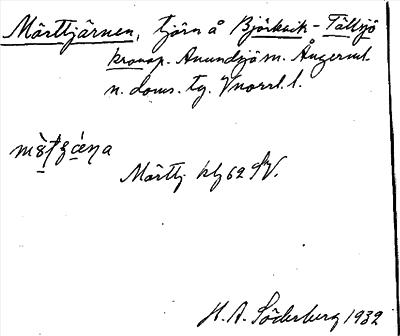 Märttjärnen, tjärn å Björkvik-Tällsjö
kronop. Anundsjö sn. Ångerml.
n. doms. tg. Vnorrl. l.
Märttj. kbl 62 SV.
H. A. Söderberg 1932